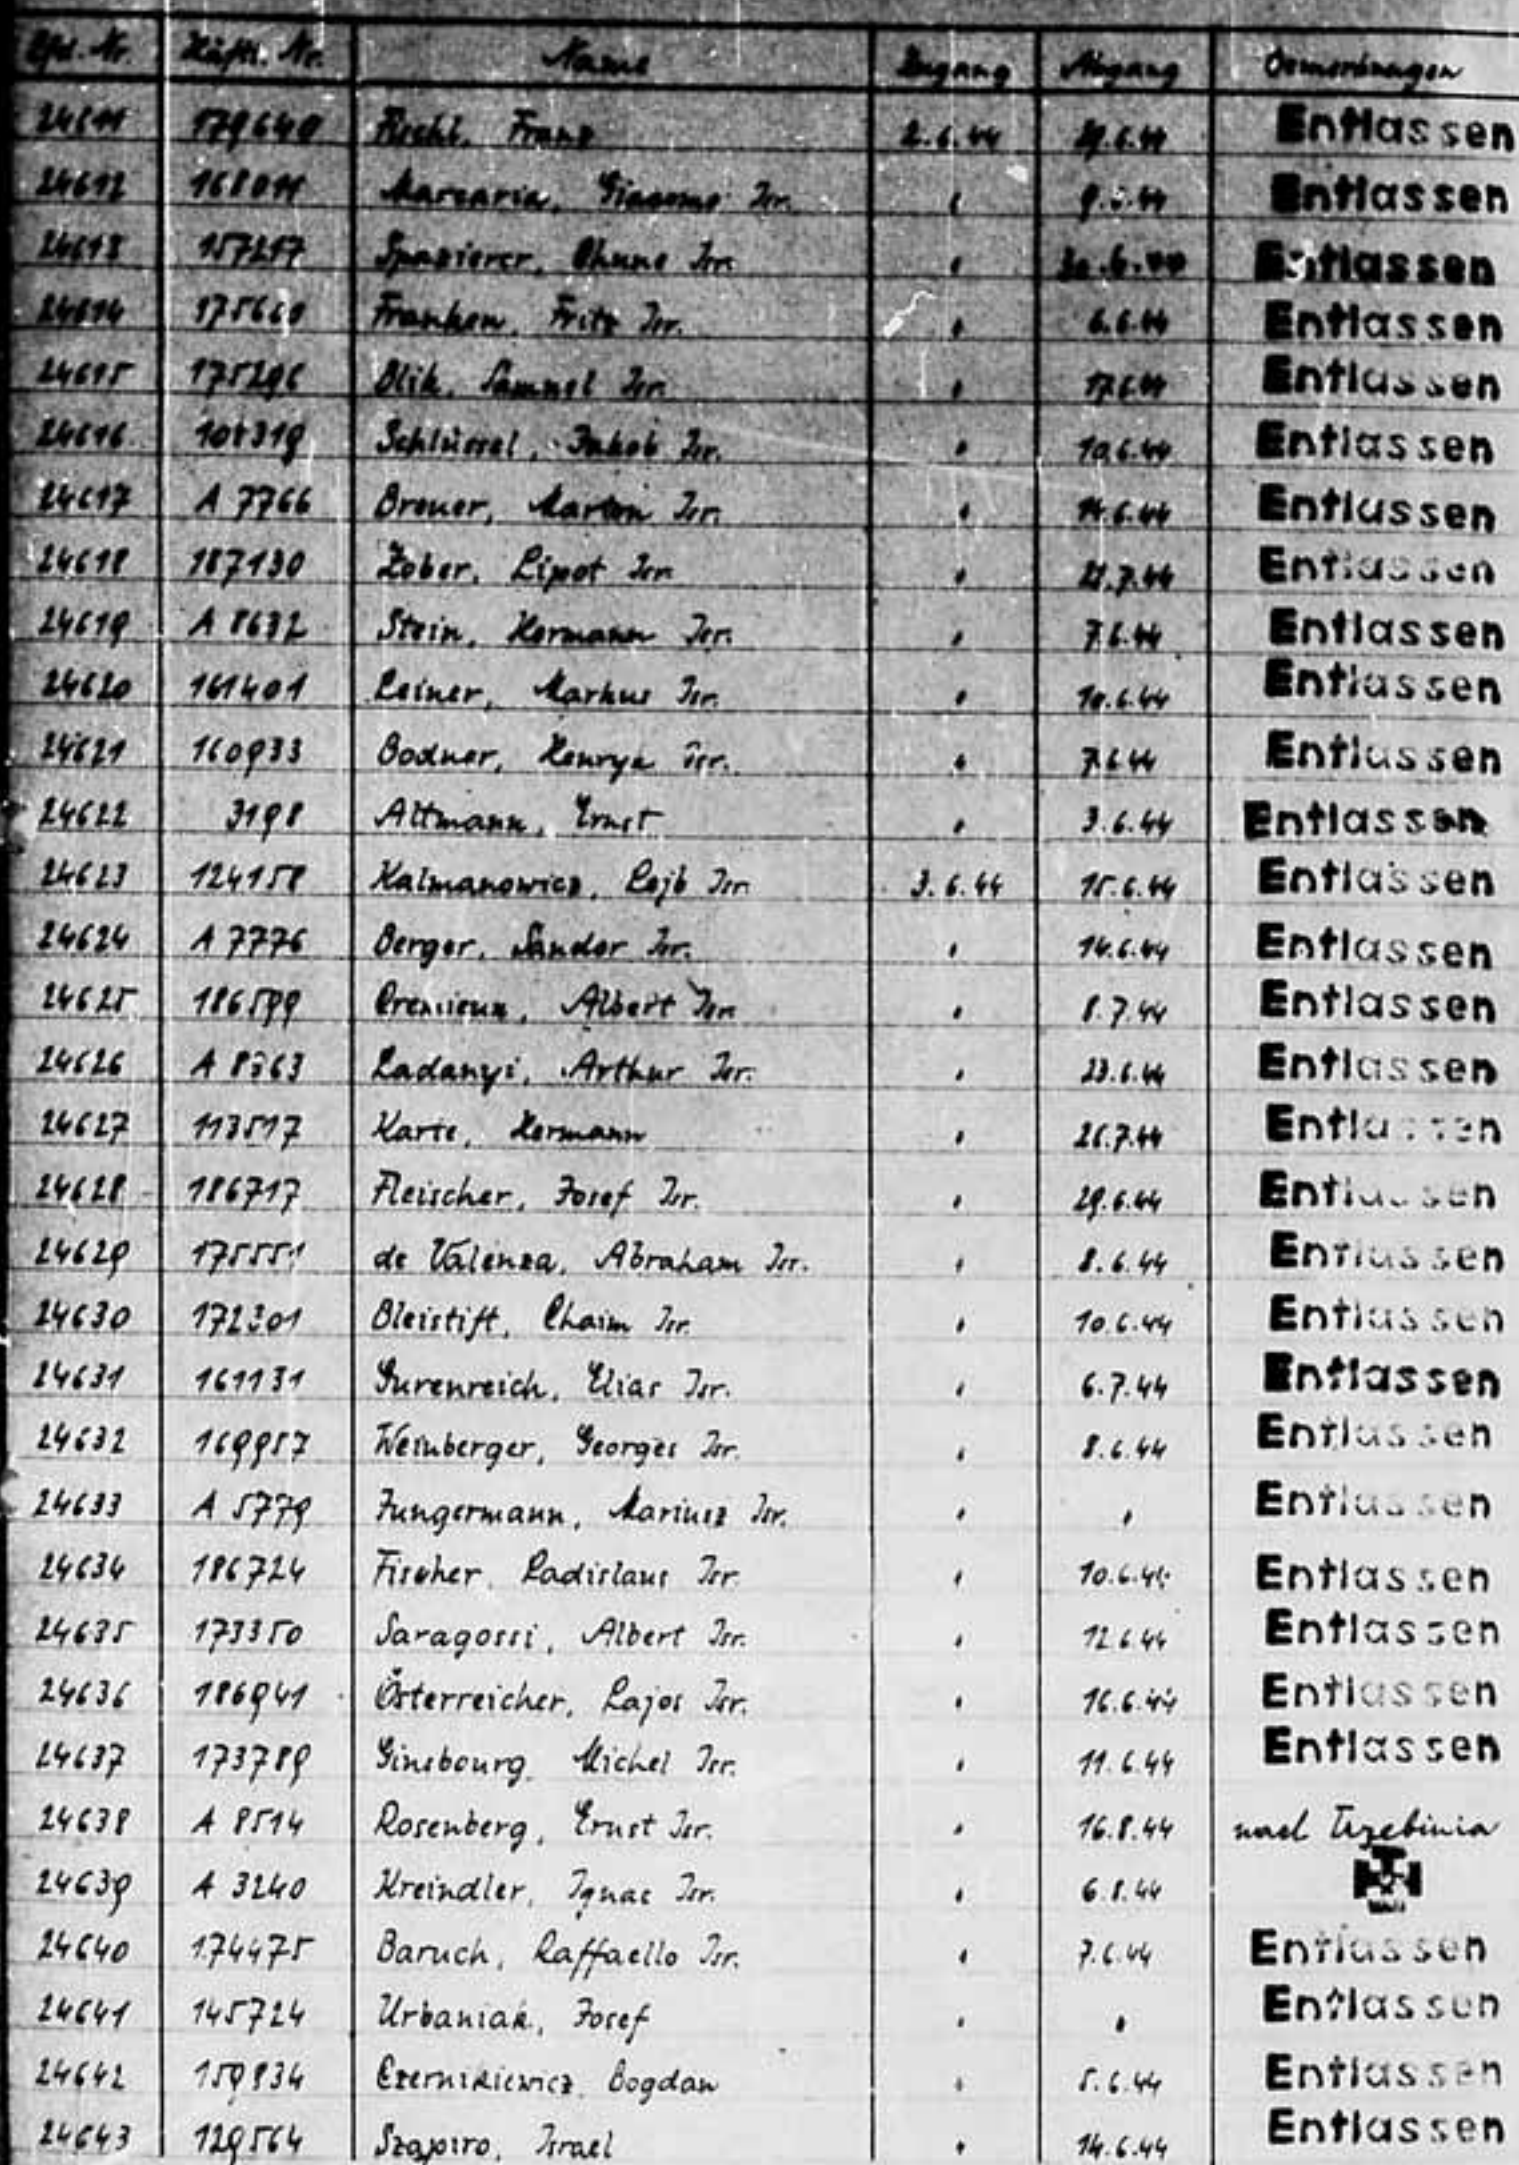 Lfd. Nr. Häftl. Nr. Name Zugang Abgang Bemerkungen
24611 179640 Franz 2.6.44 29.6.44 Entlassen
24612 168011 Giacomo Isr. " Entlassen
24613 157217 Spazierer, Chune Isr. " Entlassen
24614 Franken, Fritz Isr. " 6.6.44 Entlassen
24615 175296 Blik, Samuel Isr. " 17.6.44 Entlassen
24616 Schlüssel, Jakob Isr. " 10.6.44 Entlassen
24617 A 7766 Breuer, Martin Isr. " 14.6.44 Entlassen
24618 187130 Zober, Lipot Isr. " Entlassen
24619 A 8632 Stein, Hermann Isr. " 7.6.44 Entlassen
24620 161401 Leiner, Markus Isr. " 10.6.44 Entlassen
24621 160933 Bodner, Henryk Isr. " 7.6.44 Entlassen
24622 3198 Altmann, Ernst " 3.6.44 Entlassen
24623 124158 Kalmanowicz, Lejb Isr. 3.6.44 15.6.44 Entlassen
24624 A 7776 Berger, Sandor Isr. " 14.6.44 Entlassen
24625 186599 Cremieux, Albert Isr. " 8.7.44 Entlassen
24626 A 8363 Ladanyi, Arthur Isr. " 23.6.44 Entlassen
24627 113517 Hermann " 26.7.44 Entlassen
24628 186717 Fleischer, Josef Isr. " 29.6.44 Entlassen
24629 175551 de Valenza, Abraham Isr. " 8.6.44 Entlassen
24630 172301 Bleistift, Chaim Isr. " 10.6.44 Entlassen
24631 161131 Gurenreich, Elias Isr. " 6.7.44 Entlassen
24632 169957 Weinberger, Georges Isr. " 8.6.44 Entlassen
24633 A 5779 Jungermann, Mariusz Isr. " " Entlassen
24634 186724 Fischer, Ladislaus Isr. " 10.6.44 Entlassen
24635 173350 Saragossi, Albert Isr. " 12.6.44 Entlassen
24636 186941 Österreicher, Lajos Isr. " 16.6.44 Entlassen
24637 173789 Ginsbourg, Michel Isr. " 11.6.44 Entlassen
24638 A 8514 Rosenberg, Ernst Isr. " 16.8.44 nach Trzebinia
24639 A 3240 Kreindler, Ignac Isr. " 6.8.44
24640 174475 Baruch, Raffaello Isr. " 7.6.44 Entlassen
24641 145724 Urbaniak, Josef " " Entlassen
24642 159834 Czernikiewicz, Bogdan " 5.6.44 Entlassen
24643 129564 Szapiro, Israel " 14.6.44 Entlassen